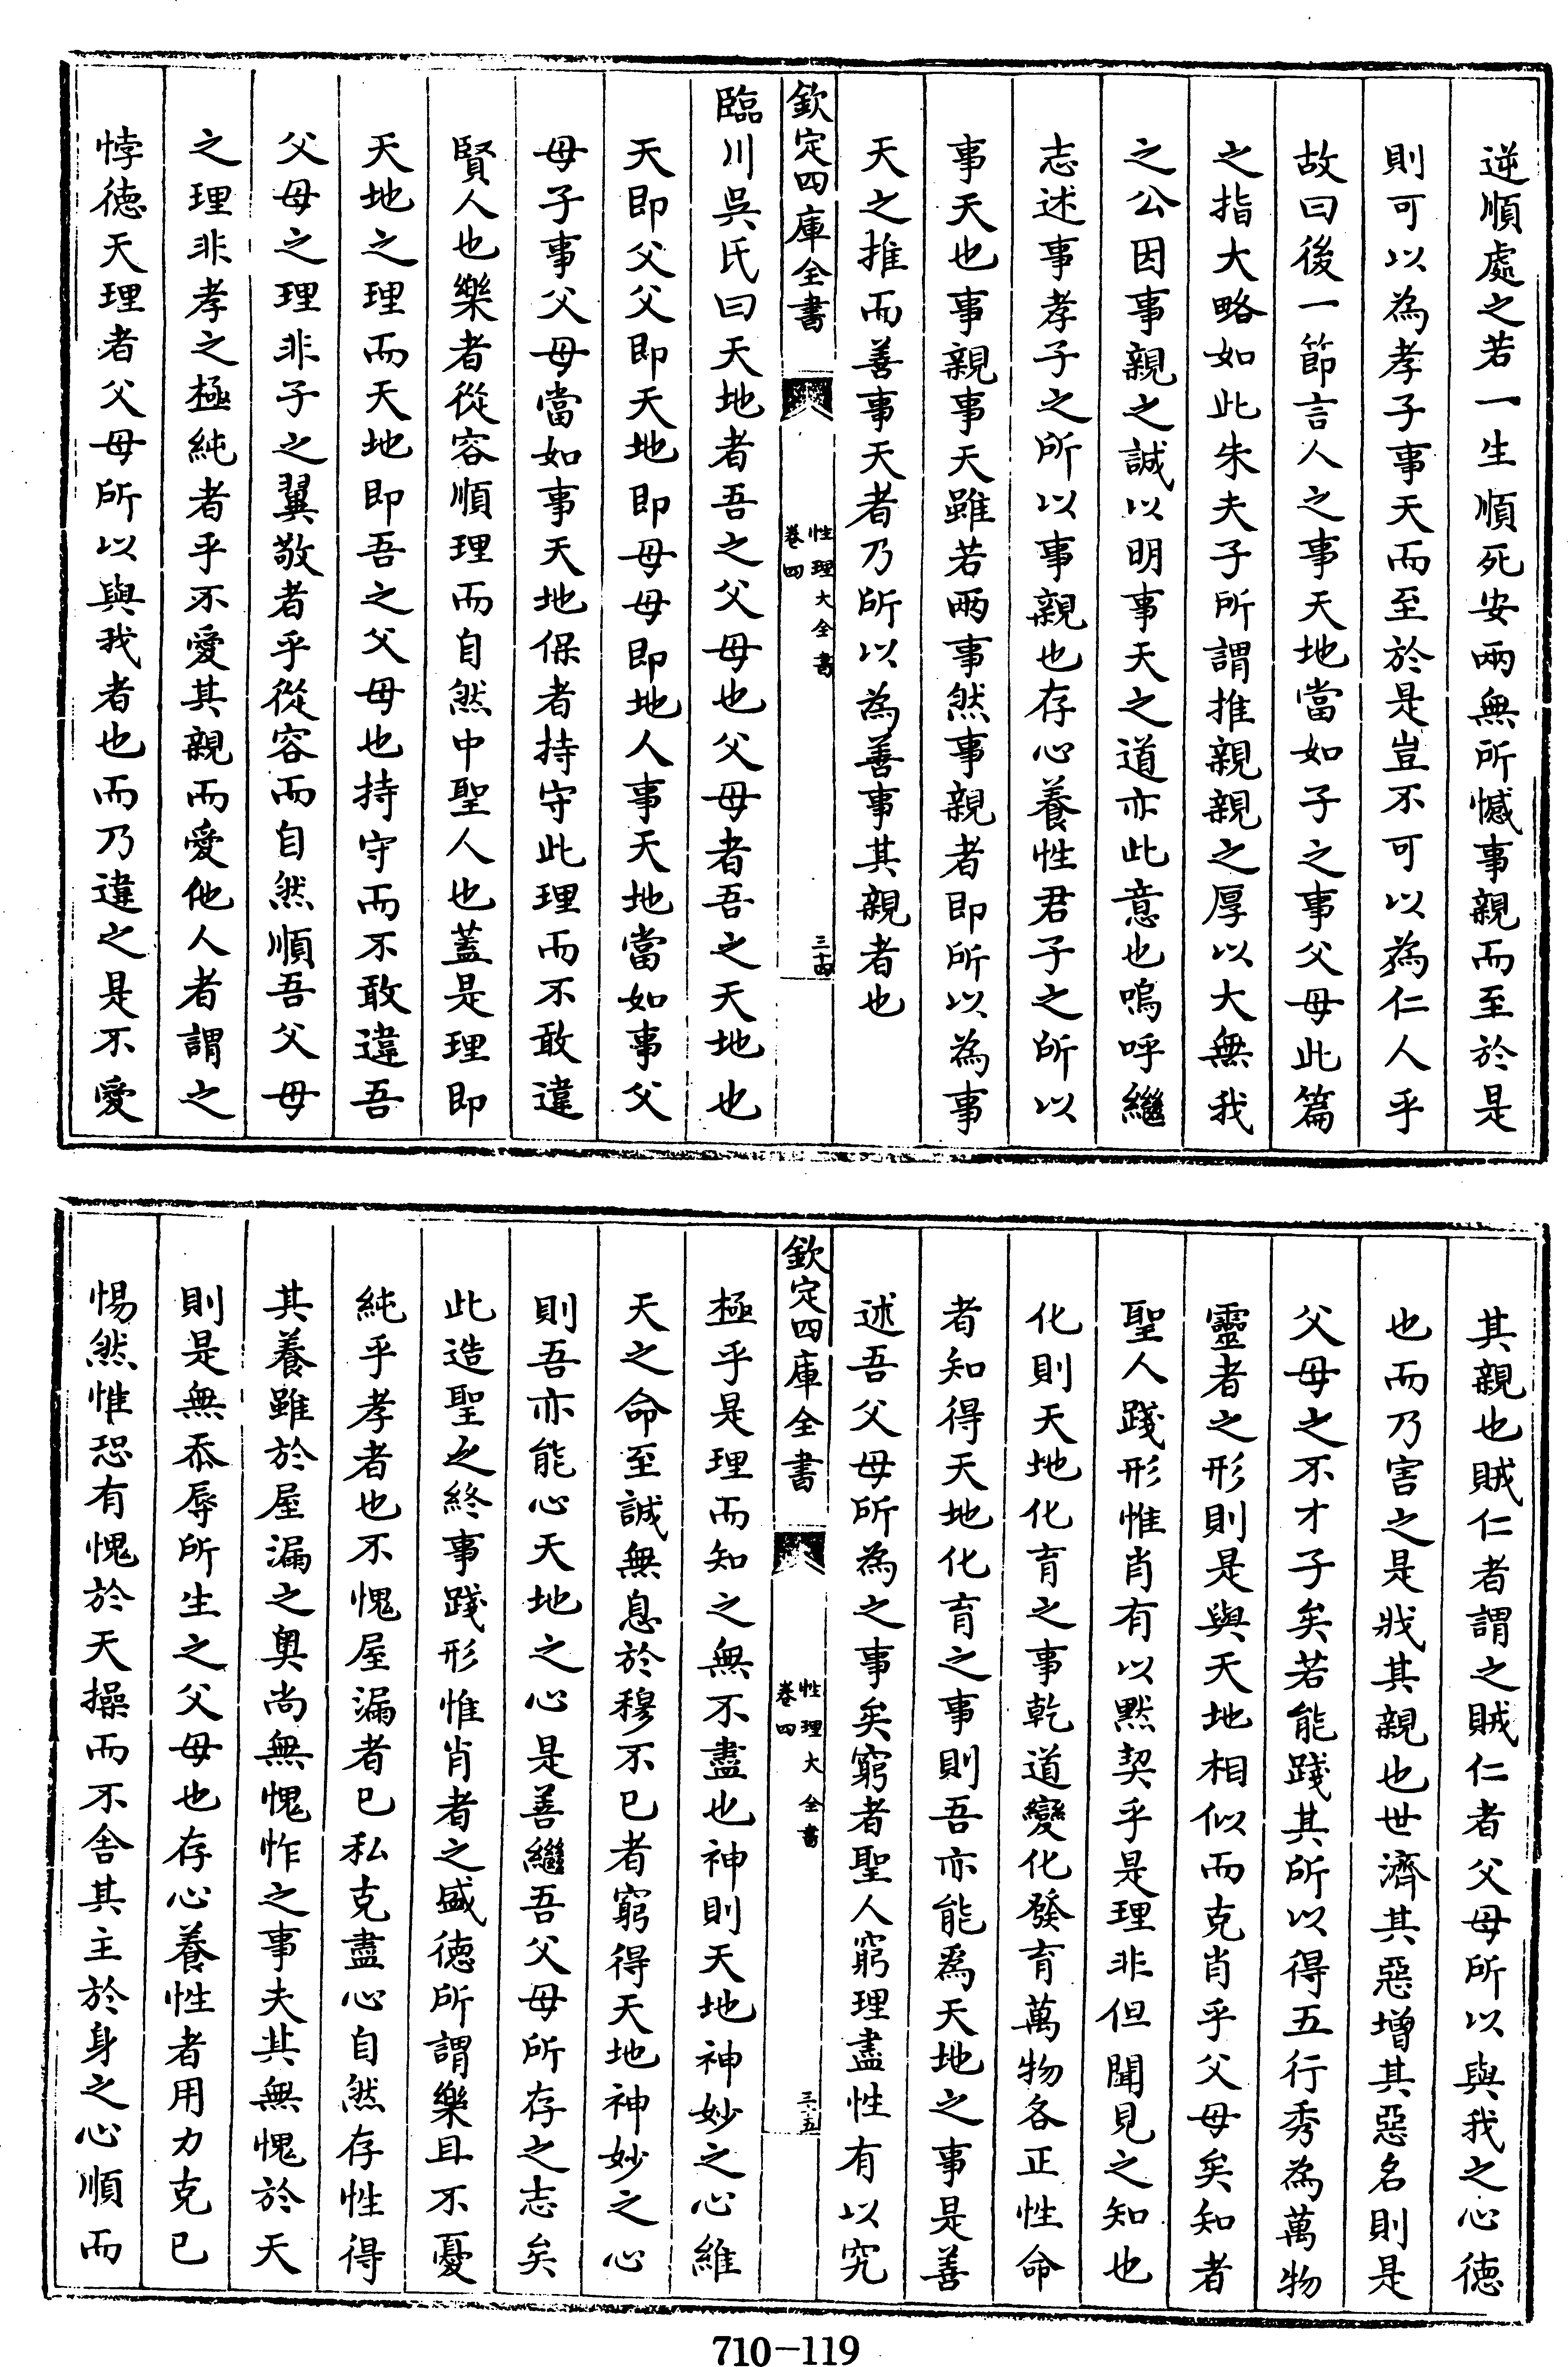 逆順處之若一生順死安兩無所憾事親而至於是
則可以為孝子事天而至於是豈不可以為仁人乎
故曰後一節言人之事天地當如子之事父母此篇
之指大略如此朱夫子所謂推親親之厚以大無我
之公因事親之誠以明事天之道亦此意也嗚呼繼
志述事孝子之所以事親也存心養性君子之所以
事天也事親事天雖若兩事然事親者即所以為事
天之推而善事天者乃所以為善事其親者也
欽定四庫全書
性理大全書
卷四
三十四
臨川吳氏曰天地者吾之父母也父母者吾之天地也
天即父父即天地即母母即地人事天地當如事父
母子事父母當如事天地保者持守此理而不敢違
賢人也樂者從容順理而自然中聖人也蓋是理即
天地之理而天地即吾之父母也持守而不敢違吾
父母之理非子之翼敬者乎從容而自然順吾父母
之理非孝之極純者乎不愛其親而愛他人者謂之
悖徳天理者父母所以與我者也而乃違之是不愛
其親也賊仁者謂之賊仁者父母所以與我之心徳
也而乃害之是戕其親也世濟其惡增其惡名則是
父母之不才子矣若能踐其所以得五行秀為萬物
靈者之形則是與天地相似而克肖乎父母矣知者
聖人踐形惟肖有以黙契乎是理非但聞見之知也
化則天地化育之事乾道變化發育萬物各正性命
者知得天地化育之事則吾亦能為天地之事是善
述吾父母所為之事矣窮者聖人窮理盡性有以究
欽定四庫全書
性理大全書
卷四
三十五
極乎是理而知之無不盡也神則天地神妙之心維
天之命至誠無息於穆不已者窮得天地神妙之心
則吾亦能心天地之心是善繼吾父母所存之志矣
此造聖之終事踐形惟肖者之盛徳所謂樂且不憂
純乎孝者也不愧屋漏者已私克盡心自然存性得
其養雖於屋漏之奧尚無愧怍之事夫其無愧於天
則是無忝辱所生之父母也存心養性者用力克已
惕然惟恐有愧於天操而不舍其主於身之心順而
710-119